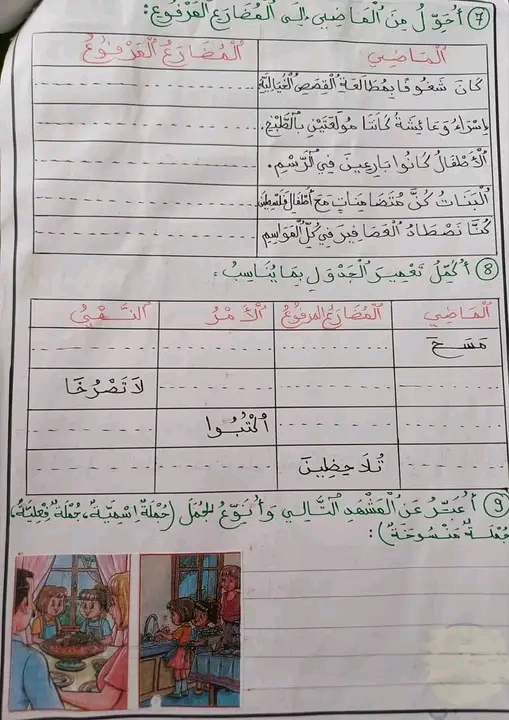 7 أُحَوِّلُ مِنَ الْمَاضِي إِلَى الْمُضَارِعِ الْمَرْفُوعِ:
الْمَاضِي الْمُضَارِعُ الْمَرْفُوعُ
كَانَ شَغُوفًا بِمُطَالَعَةِ الْقِصَصِ الْخَيَالِيَّةِ
إِسْرَاءُ وَعَائِشَةُ كَانَتَا مُولَعَتَيْنِ بِالطَّبْخِ.
الْأَطْفَالُ كَانُوا بَارِعِينَ فِي الرَّسْمِ.
الْبَنَاتُ كُنَّ مُتَضَامِنَاتٍ مَعَ أَطْفَالِ فِلَسْطِينَ
كُنَّا نَصْطَادُ الْعَصَافِيرَ فِي كُلِّ الْمَوَاسِمِ
8 أُكْمِلُ تَعْمِيرَ الْجَدْوَلِ بِمَا يُنَاسِبُ:
الْمَاضِي الْمُضَارِعُ الْمَرْفُوعُ الْأَمْرُ النَّهْيُ
مَسَحَ
لَا تَصْرُخَا
اُكْتُبُوا
تُلَاحِظِينَ
9 أُعَبِّرُ عَنِ الْمَشْهَدِ التَّالِي وَأُنَوِّعُ الْجُمَلَ (جُمْلَةٌ اِسْمِيَّةٌ، جُمْلَةٌ فِعْلِيَّةٌ،
جُمْلَةٌ مَنْسُوخَةٌ):